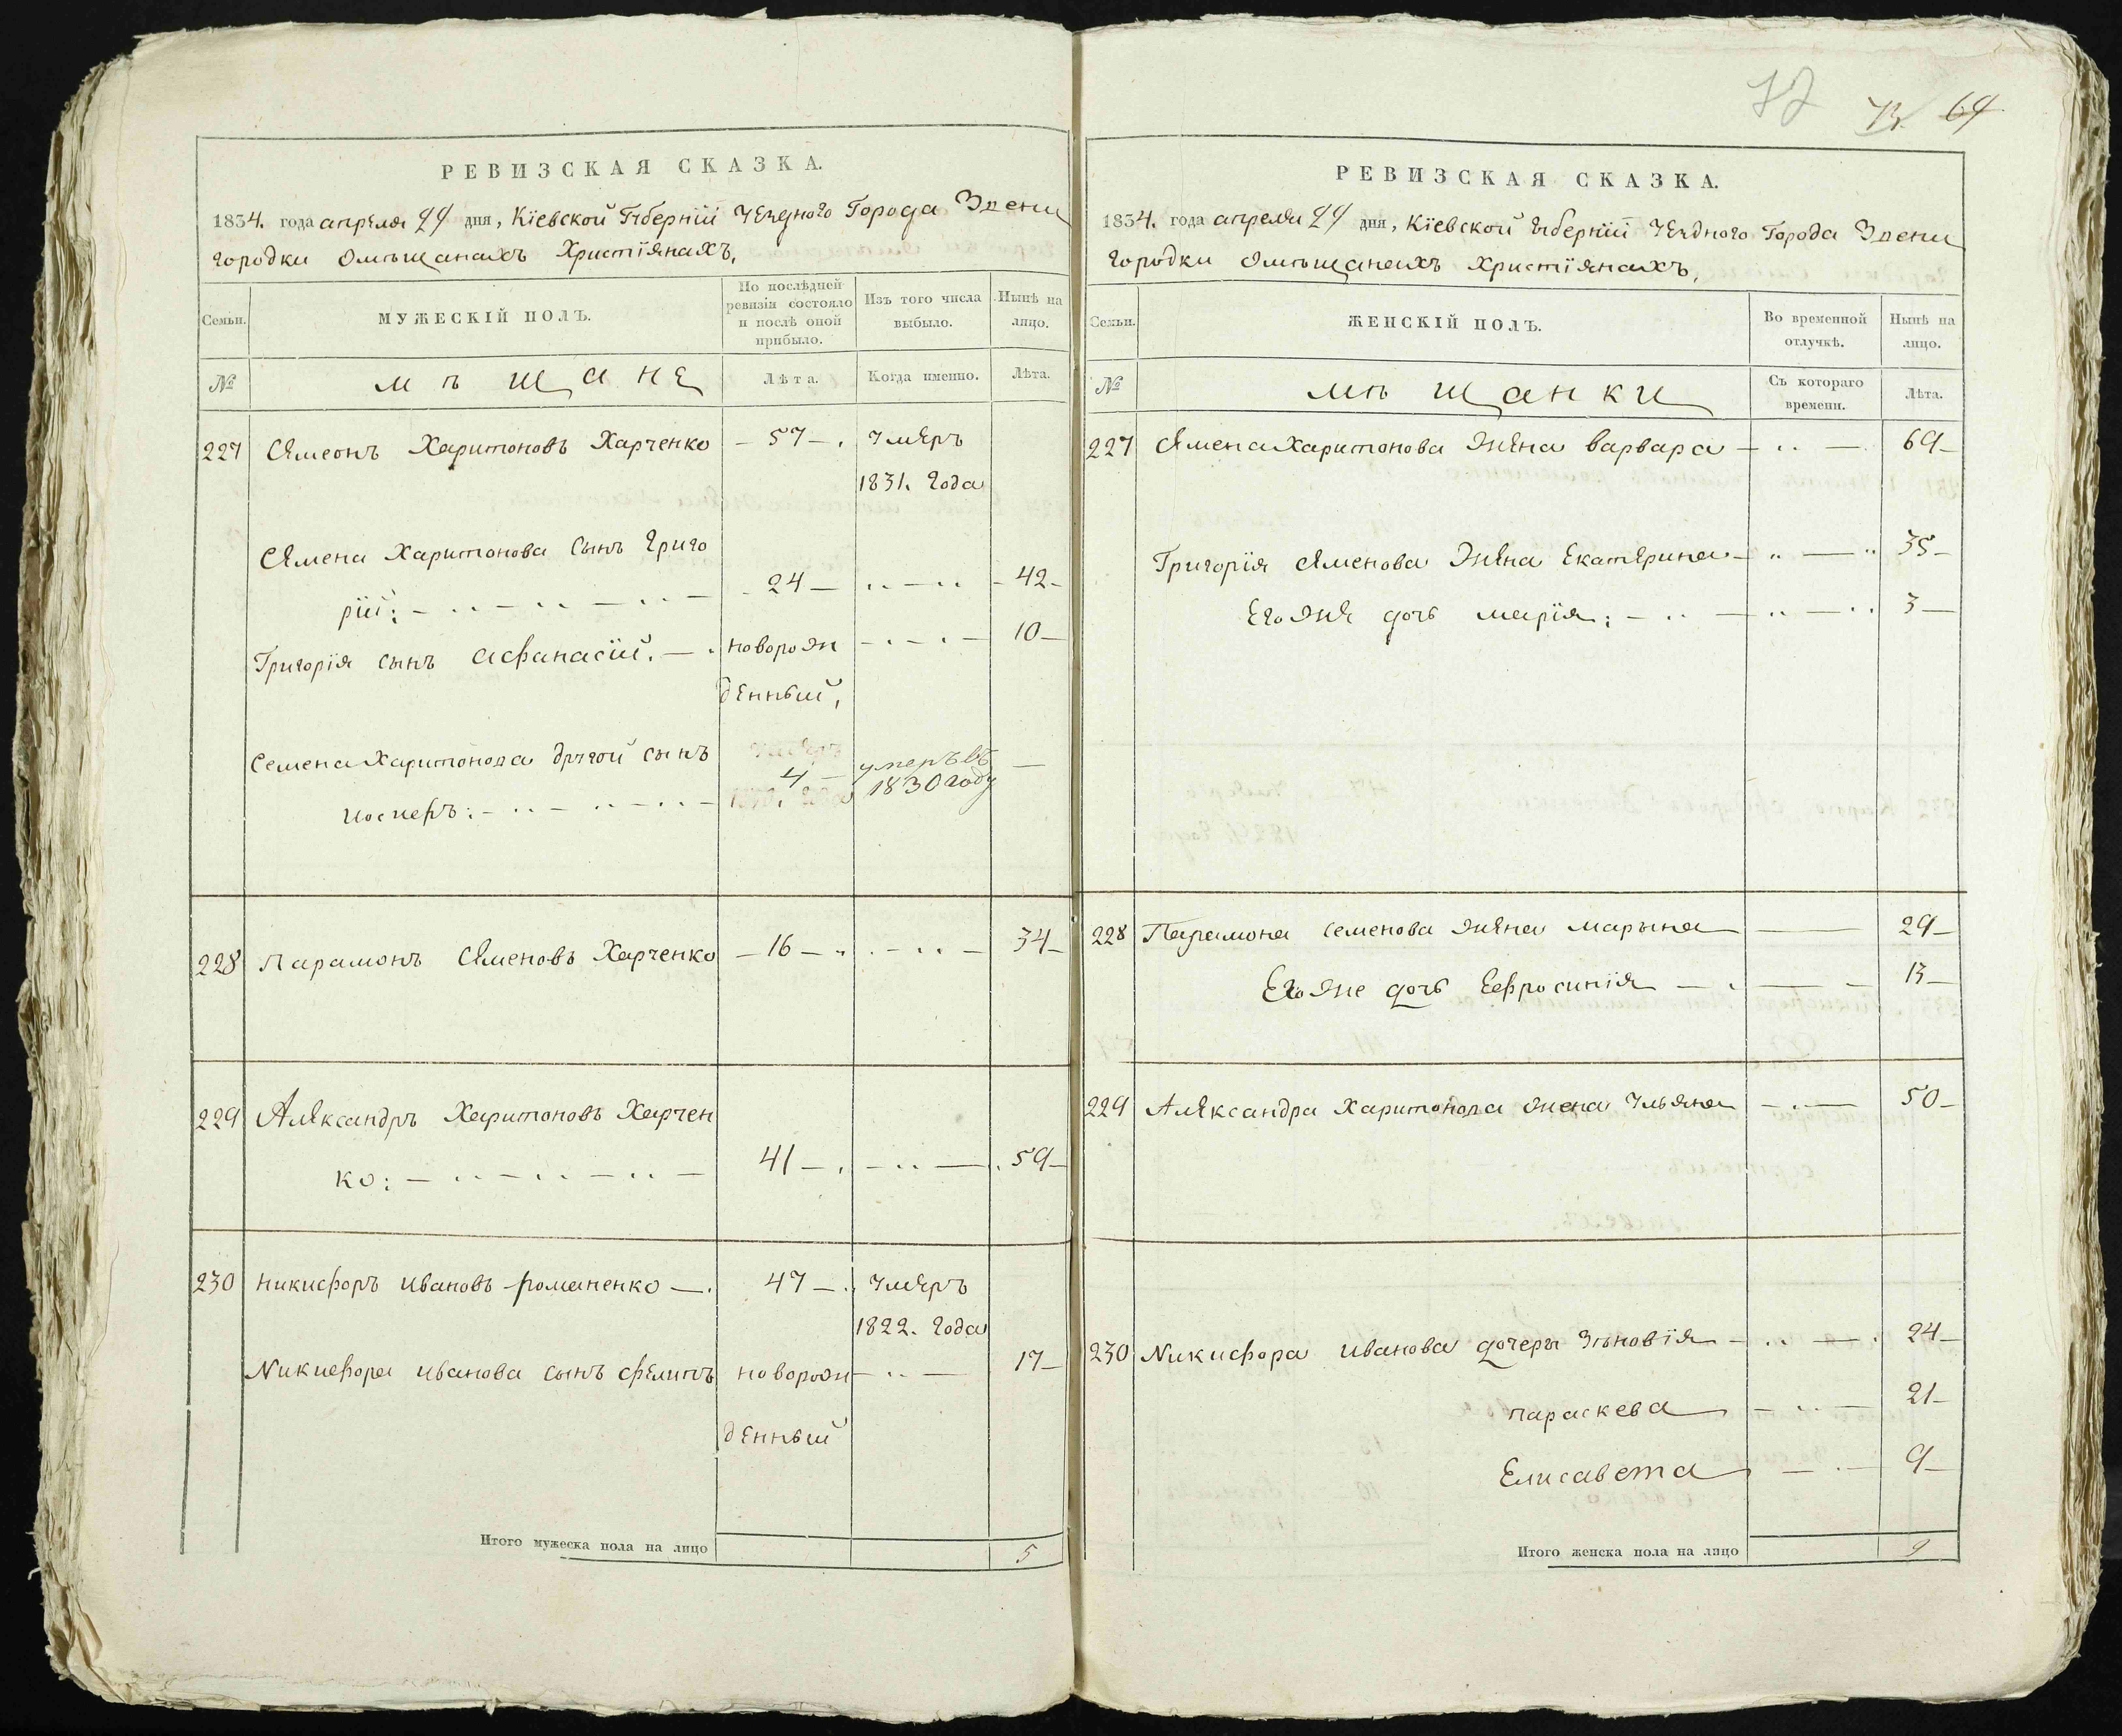 72 73. 64
РЕВИЗСКАЯ СКАЗКА.
1834. года апреля 24 дня, Кїевской Губернїи Уезднаго Города Звени
городки Омѣщанахъ Христїянахъ,
Семьи. МУЖЕСКІЙ ПОЛЪ. По послѣдней ревизіи состояло и послѣ оной прибыло. Изъ того числа выбыло. Нынѣ на лицо.
№ мѣщане Лѣта. Когда именно. Лѣта.
227 Семеонъ Харитоновъ Харченко — 57 — умеръ
1831. года
Семена Харитонова сынъ Григо
рїй: 24 — 42
Григорїя сынъ Афанасїй. — новорож — 10
денный,
Семена Харитонова другой сынъ 4 — умеръ въ —
Иосифъ: 1830 году
228 Парамонъ Семеновъ Харченко — 16 — 34
229 Александръ Харитоновъ Харчен
ко: — 41 — 59
230 Никифоръ Ивановъ Романенко — 47 — умеръ
1822. года
Никифора Иванова сынъ Филипъ новорож — 17
денный
Итого мужеска пола на лицо 5
РЕВИЗСКАЯ СКАЗКА.
1834. года апреля 24 дня, Кїевской Губернїи Уезднаго Города Звени
городки Омѣщанахъ Христїянахъ,
Семьи. ЖЕНСКІЙ ПОЛЪ. Во временной отлучкѣ. Нынѣ на лицо.
№ мѣщанки Съ котораго времени. Лѣта.
227 Семена Харитонова жена Варвара — 69
Григорїя Семенова жена Екатерина — 35
Его же дочь Марїя: — 3
228 Парамона Семенова жена Марына — 29
Его же дочь Ефросинїя — 13
229 Александра Харитонова жена Ульяна — 50
230 Никифора Иванова дочеры Зѣновїя — 24
Параскева — 21
Елисавета — 9
Итого женска пола на лицо 9